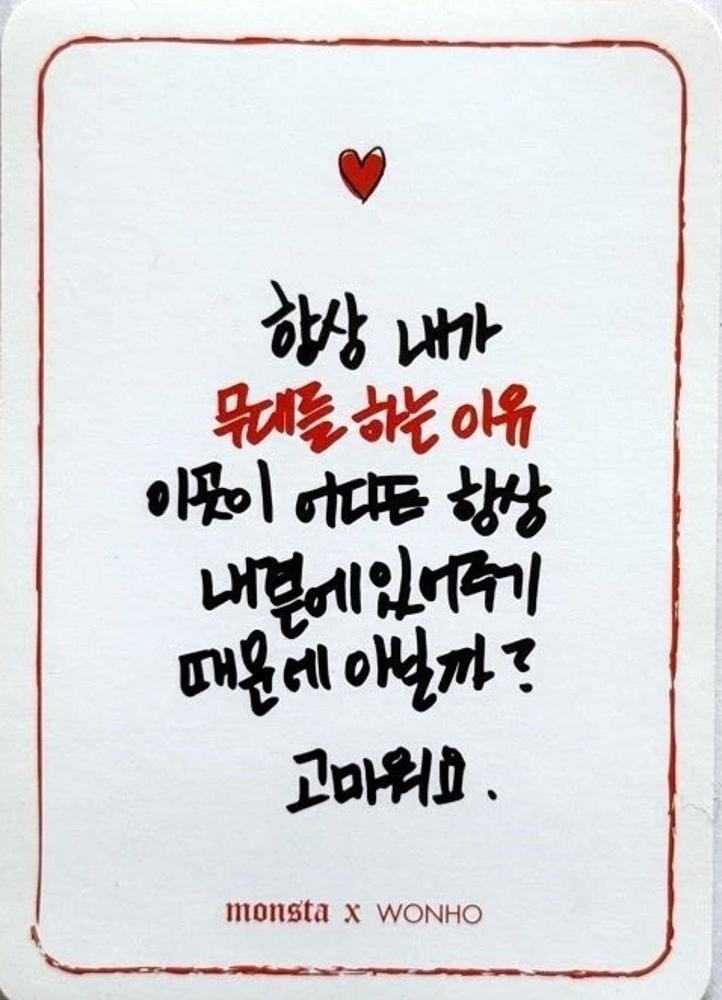 항상 내가
무대를 하는 이유
이곳이 어디든 항상
내곁에있어주기
때문에 아닐까?
고마워요.
monsta x WONHO